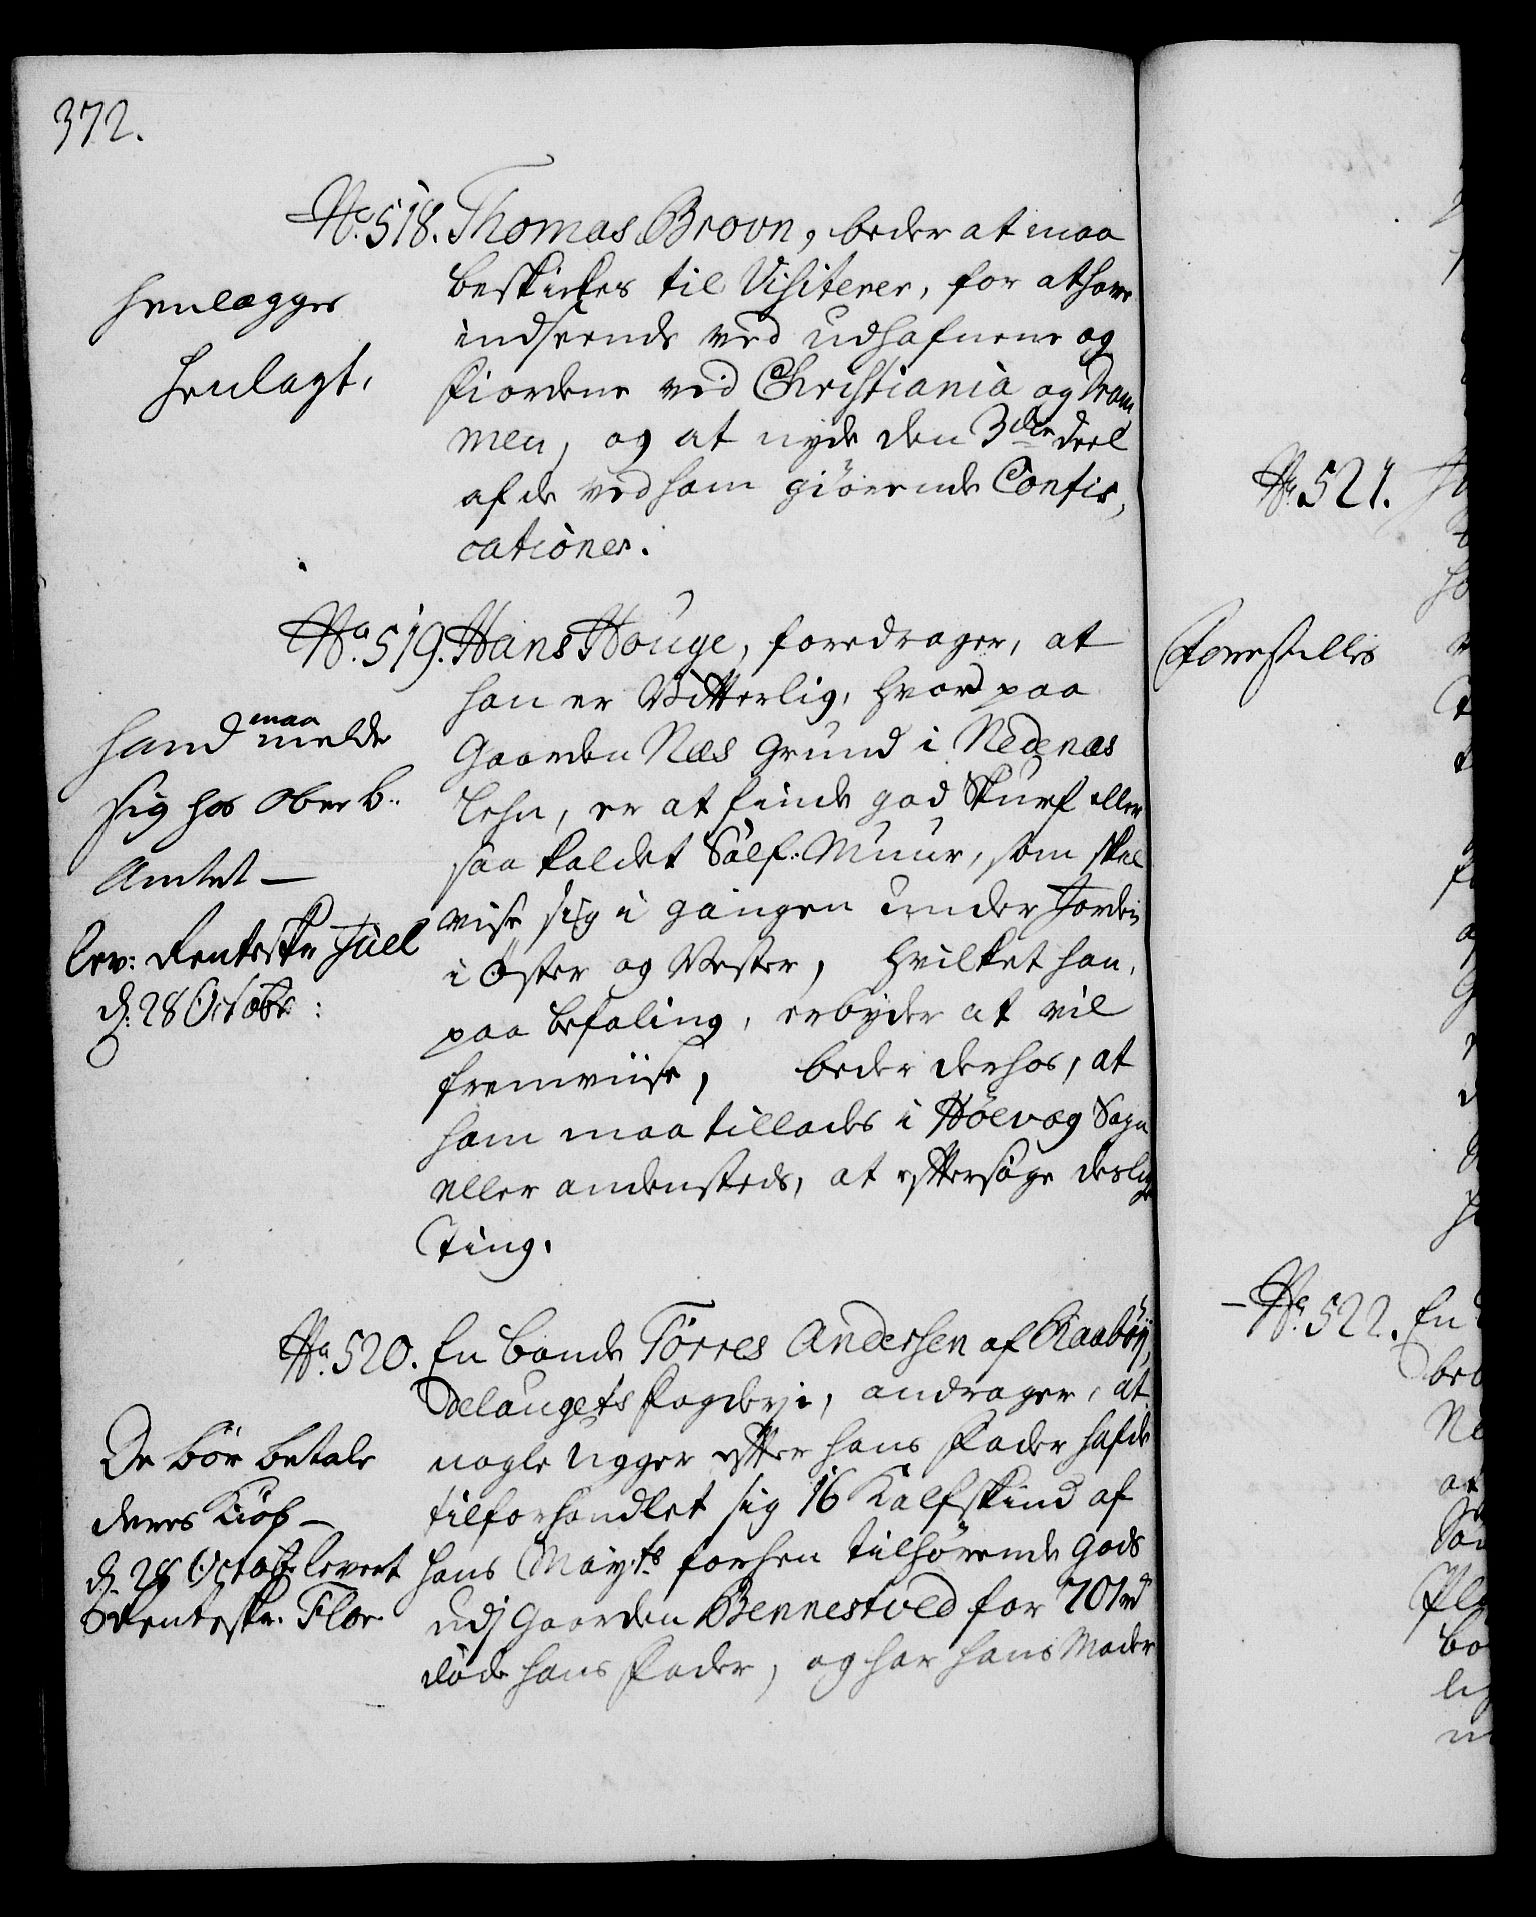 372.
No. 518. Thomas Brovn, beder at maa
beskickes til Visiterer, for at have
indseende ved Udhafnene og
fiordene ved Christiania og Dram
men, og at nyde den 3die deel
af de ved ham giörende Confis,
cationer.
henlægges
henlagt,
No. 519. Hans Houge, foredrager, at
han er Vitterlig, hvord paa
Gaarden Næs Grund i Nedenæs
Lehn, er at finde god Skurf eller
saa kaldet Sölf: Muur, som skal
vise sig i gangen under Jorden
i Öster og Vester, hvilket han,
paa befaling, erbyder at vil
fremviise, beder derhos, at
ham maa tillades i Höevag Sogn
eller andensteds, at efftersöge deslige
Ting.
hand maa melde
sig hos Ober b..
Amtet —
lev: Renteskr Juel
d. 28 Octobr:
No. 520. En bonde Törres Andersen af Raaböy,
delaugets fogderi, andrager, at
nogle Ugger effter hans Fader hafde
tilforhandlet sig 16 Kalfskind af
hans Mayts forhen tilhörende Gods
udj Gaarden Bennestved for 70 rd
döde hans Fader, og har hans Moder
De bör betale
deres Kiöb —
d. 28 Octobr leveret
Renteskr. Flor
No. 521.
Forestilles
No. 522. En